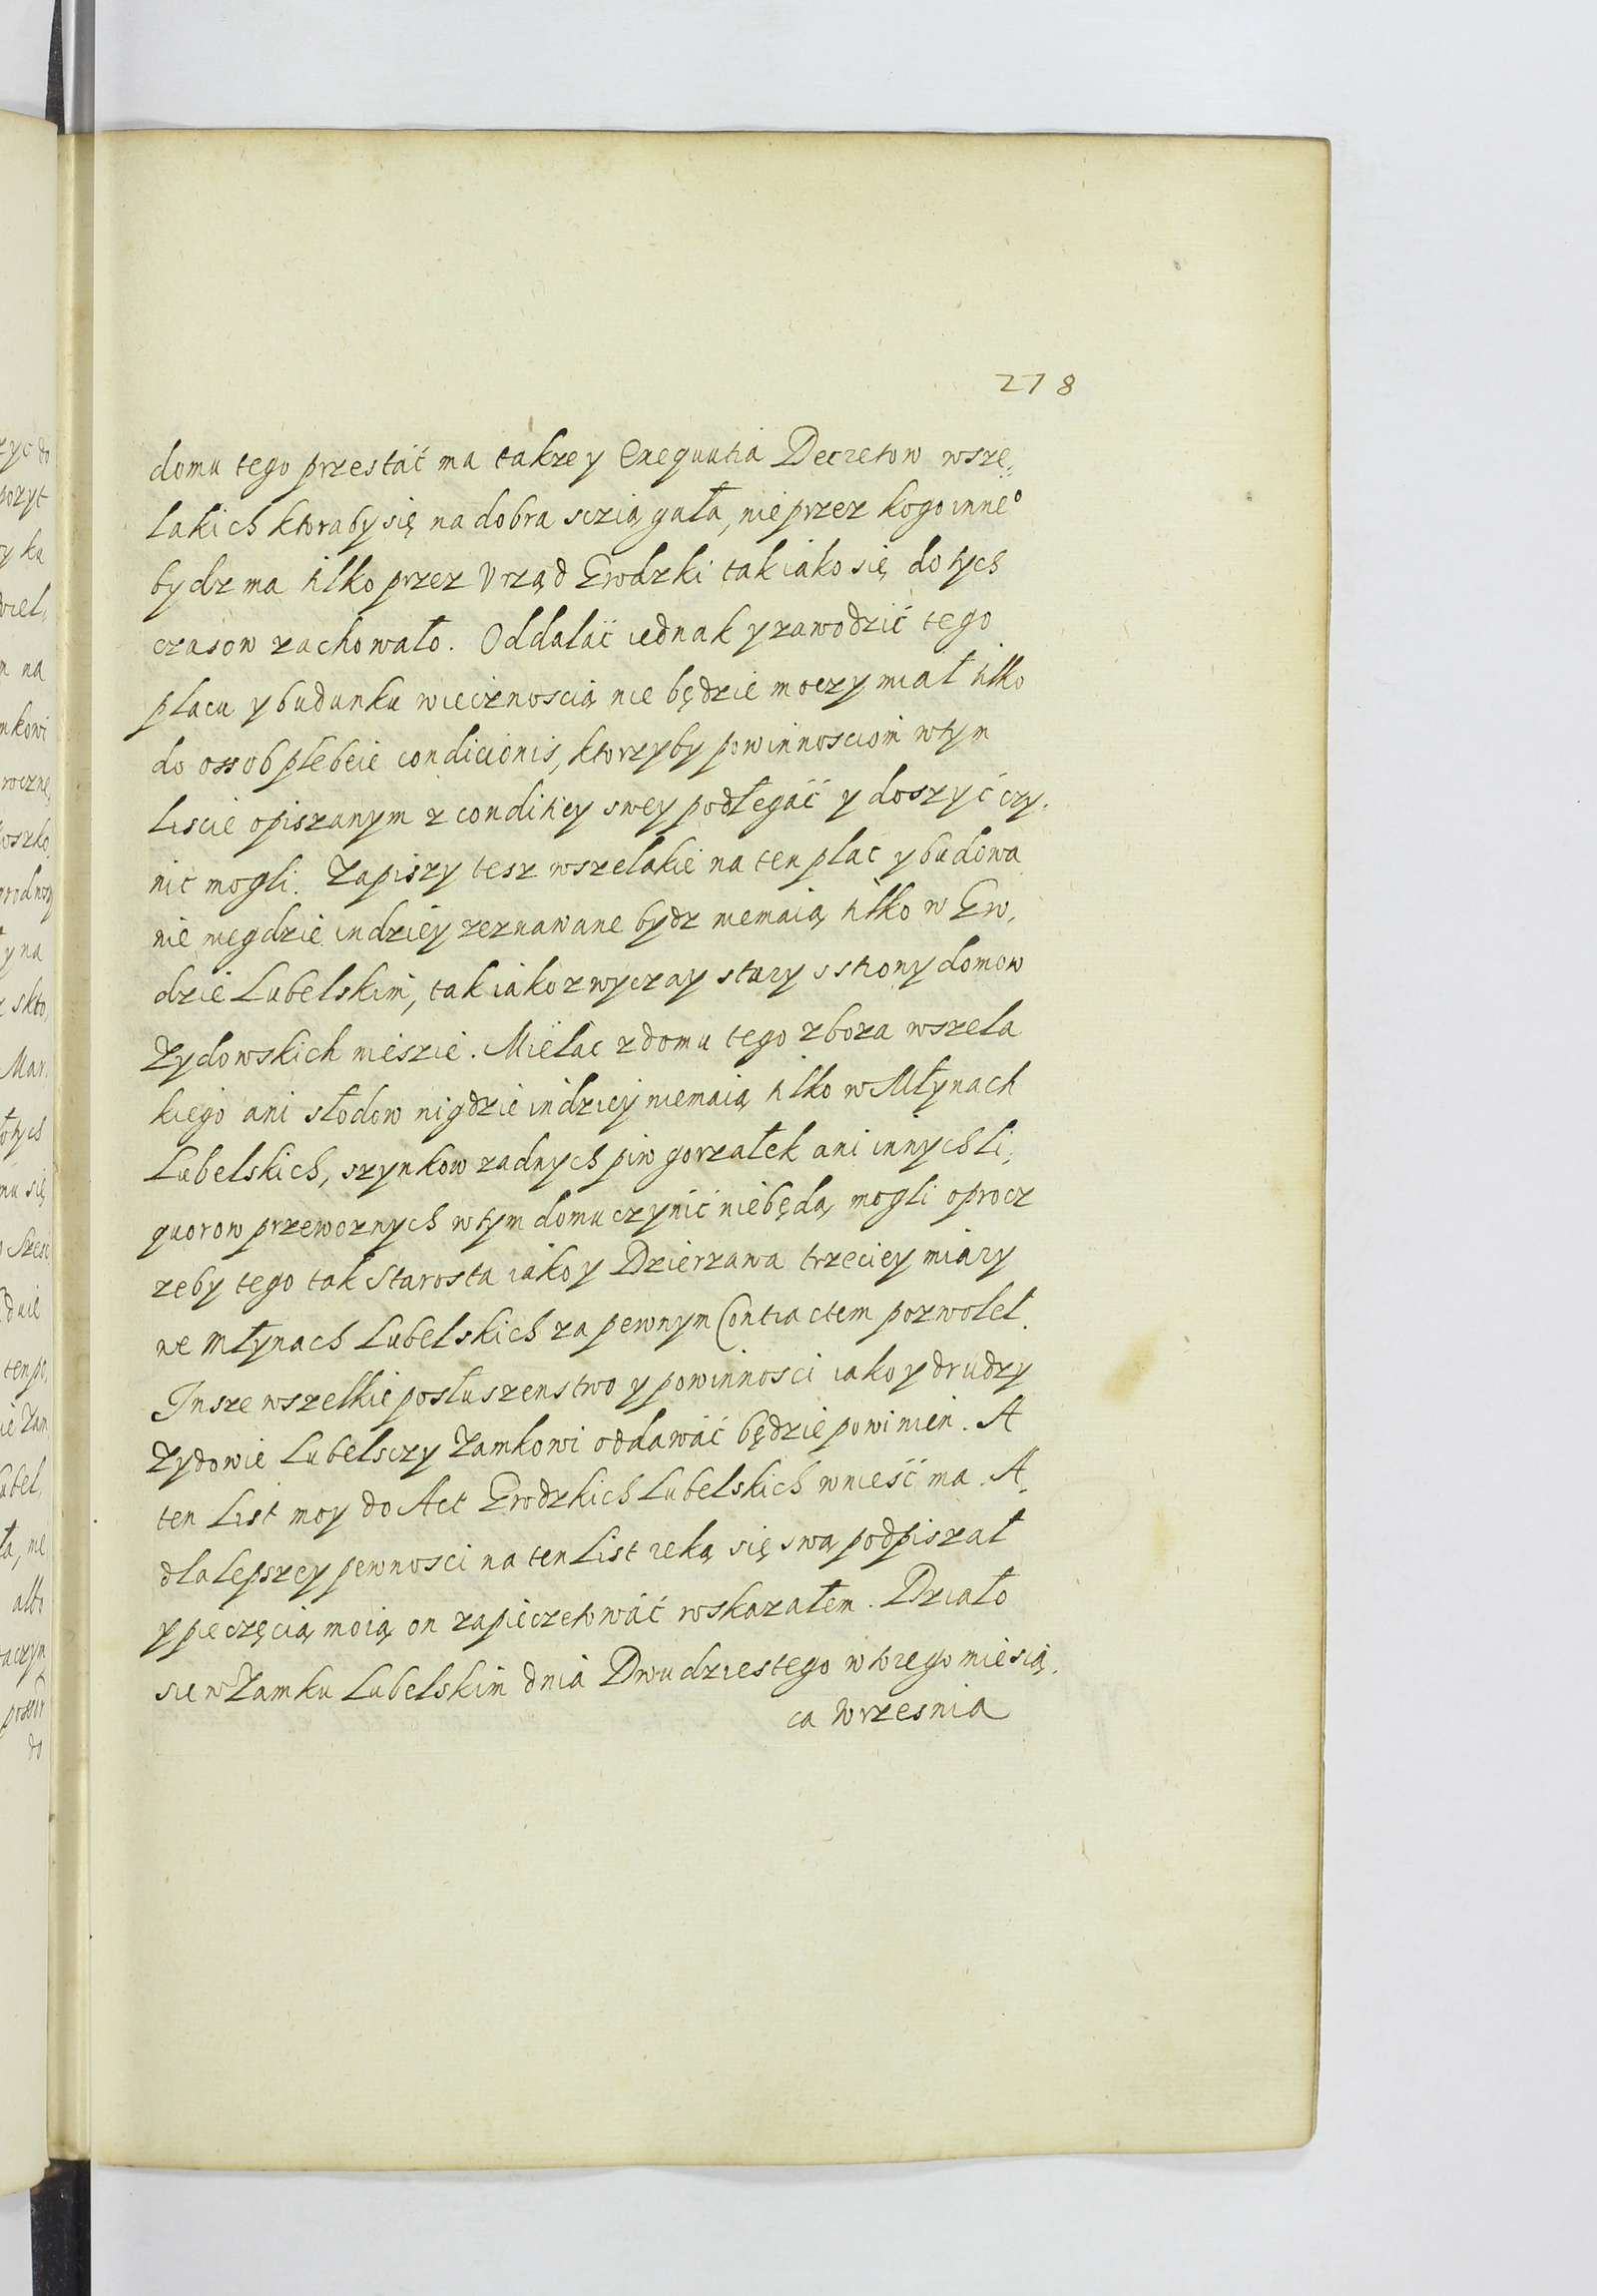 278
domu tego przestać ma takze y Exequutia Decretow wsze,
lakich ktoraby się na dobra scziągała, nie przez kogo inne°
bydz ma tilko przez Vrząd Grodzki tak iako się do tych
czasow zachowało. Oddalać iednak y zawodzić tego
placu y budunku wiecznoscią nie będzie moczy miał tilko
do ossob plebeie condicionis, ktorzyby powinnosciom w tym
liscie opiszanym z conditiey swey podlegać y doszyć czy,
nic mogli. Zapiszy tesz wszelakie na ten plac y budowa
nie niegdzie indziey zeznawane bydz niemaią tilko w Gro,
dzie Lubelskim, tak iako zwyczay stary s strony domow
Zydowskich nieszie. Mielac z domu tego zboza wszela
kiego ani słodow nigdzie indziey niemaią tilko w Młynach
Lubelskich, szynkow zadnych piw gorzałek ani innych li,
quorow przewoznych w tym domu czynić niebędą mogli oprocz
zeby tego tak Starosta iako y Dzierzawa trzeciey miary
we Młynach Lubelskich za pewnym Contractem pozwolel.
Insze wszelkie posłuszenstwo y powinnosci iako y drudzy
Zydowie Lubelsczy Zamkowi oddawać będzie powinien. A
ten List moy do Act Grodzkich Lubelskich wnieść ma. A
dla lepszey pewnosci na ten List ręką się swą podpiszał
y pieczęcią moią on zapieczetować wskazałem. Działo
sie w Zamku Lubelskim dnia Dwudziestego wtorego miesią,
ca Wrzesnia